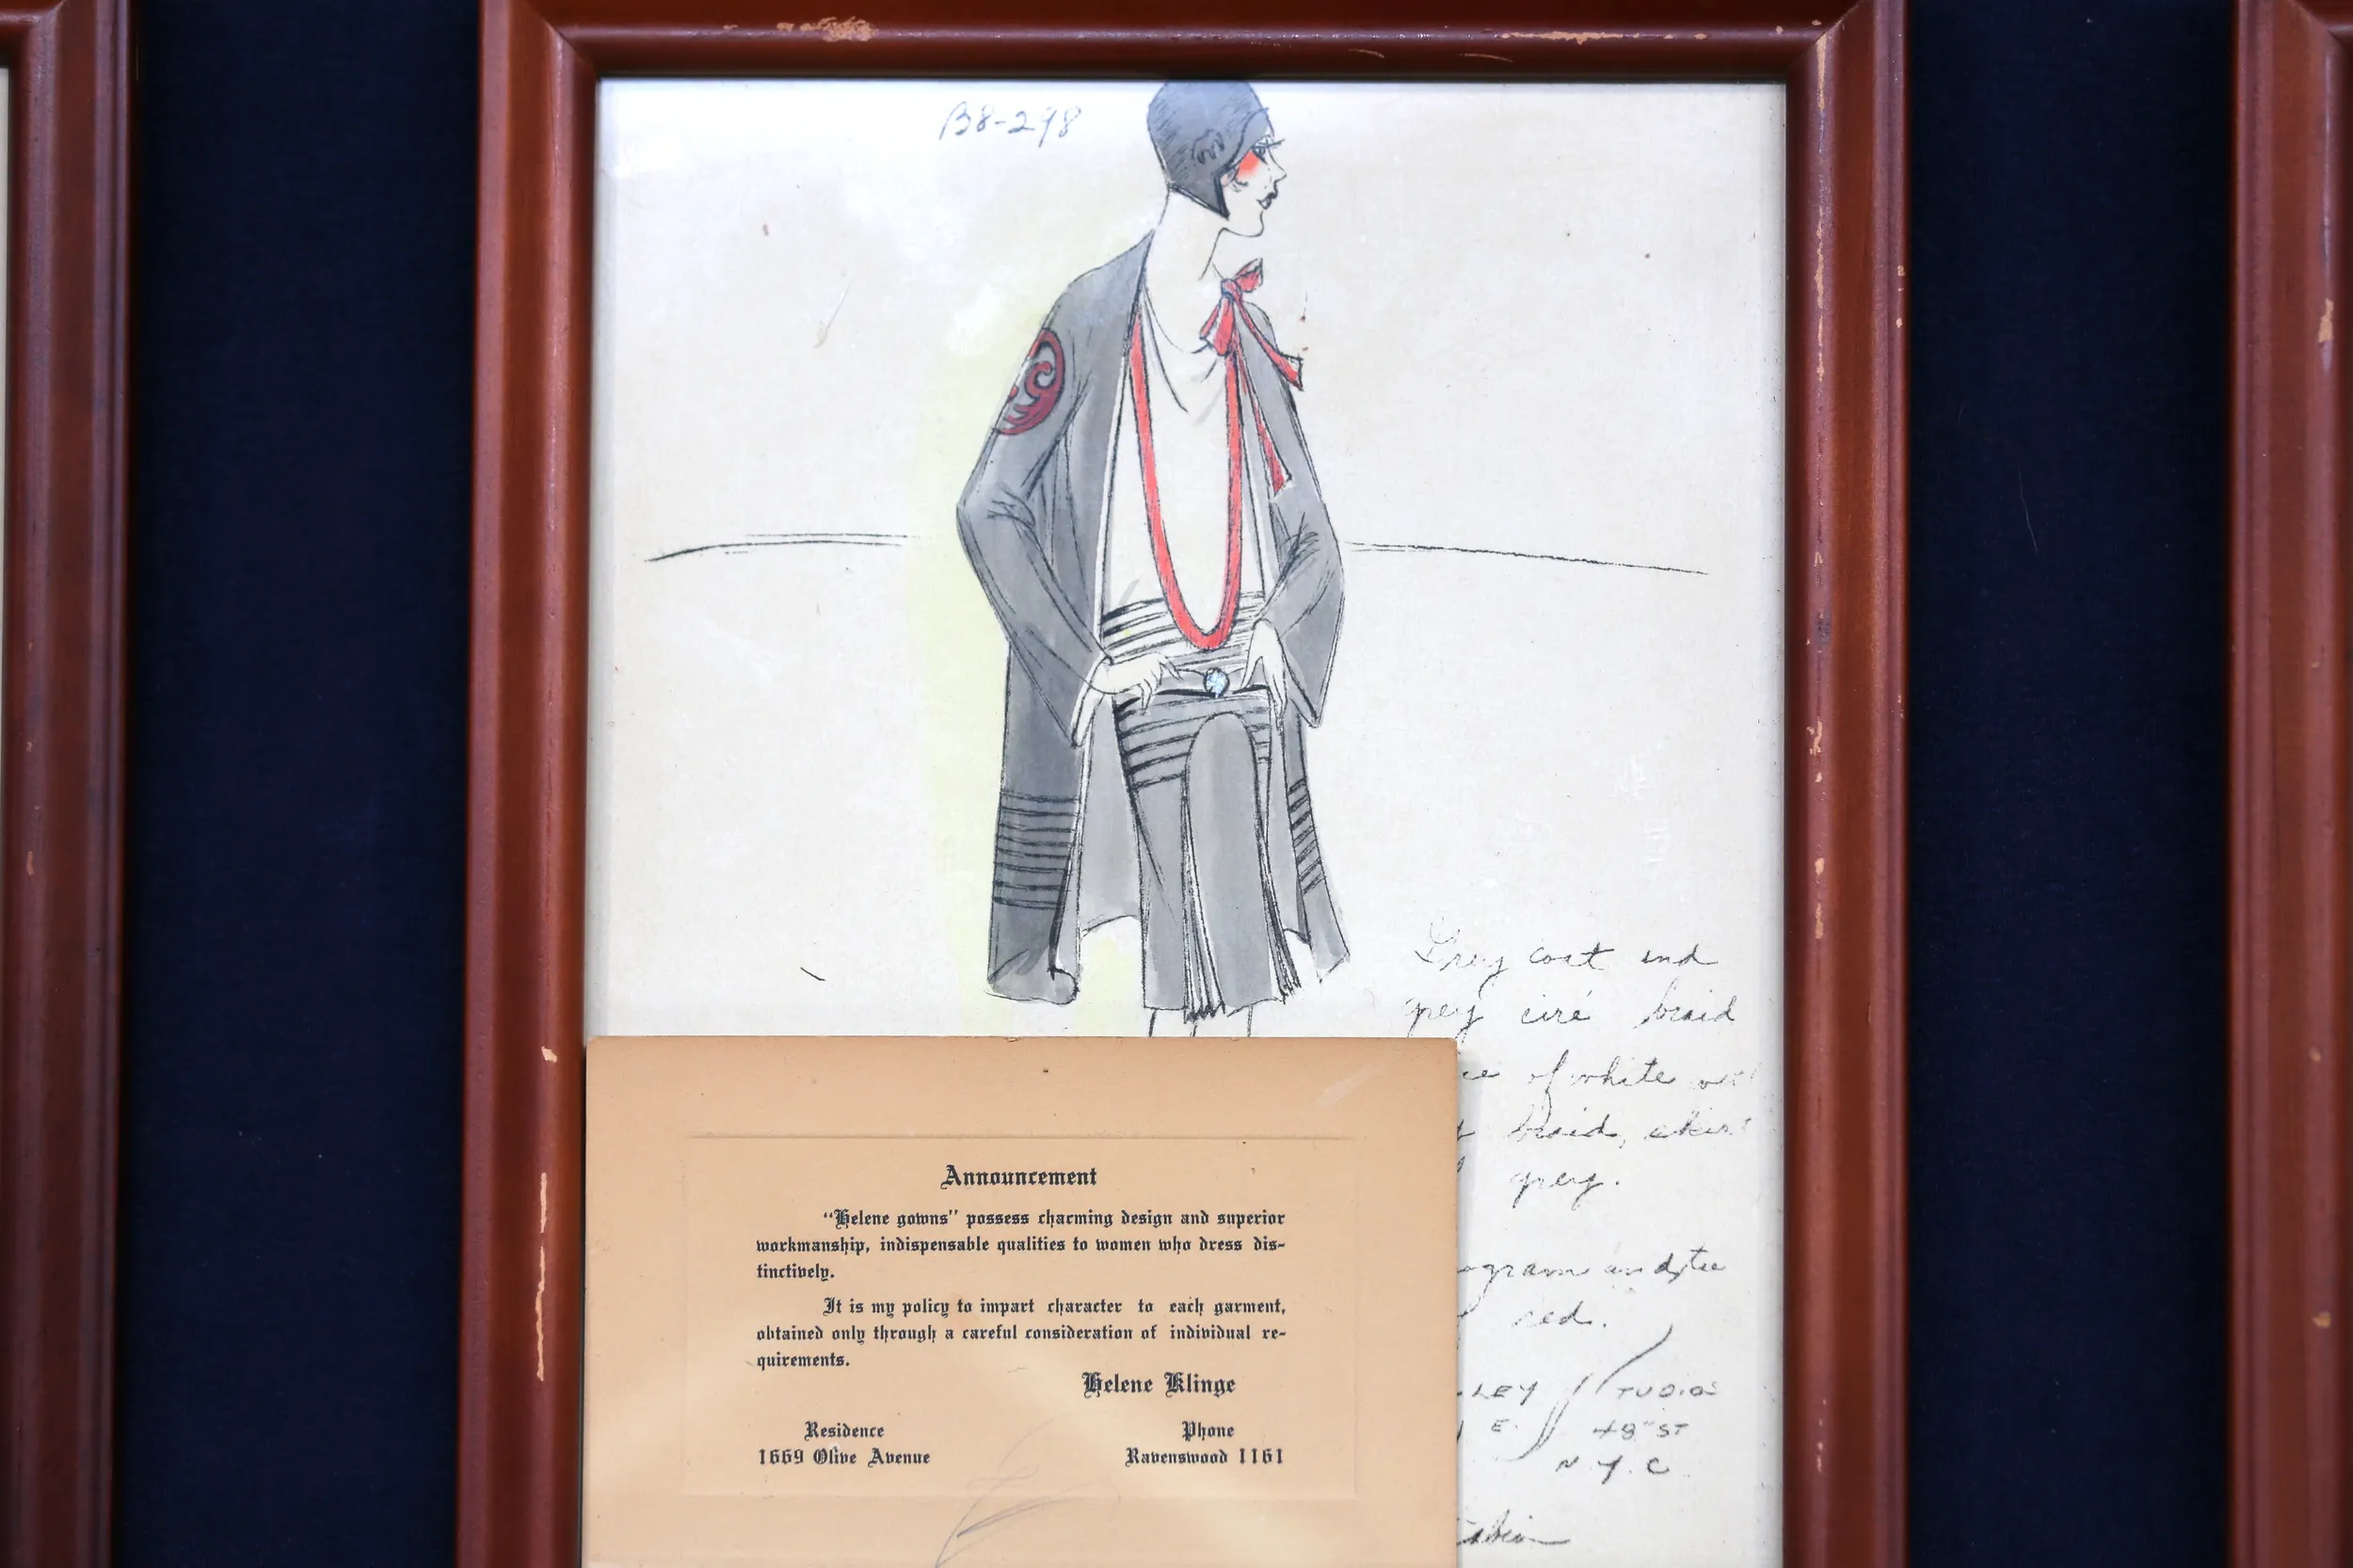 B8-298
Grey coat and
grey ciré braid
of white
braid,
grey.
and tie
red.
LEY STUDIOS
E. 48" ST
N.Y.C
Announcement
"Helene gowns" possess charming design and superior
workmanship, indispensable qualities to women who dress dis-
tinctively.
It is my policy to impart character to each garment,
obtained only through a careful consideration of individual re-
quirements.
Helene Klinge
Residence Phone
1669 Olive Avenue Ravenswood 1161